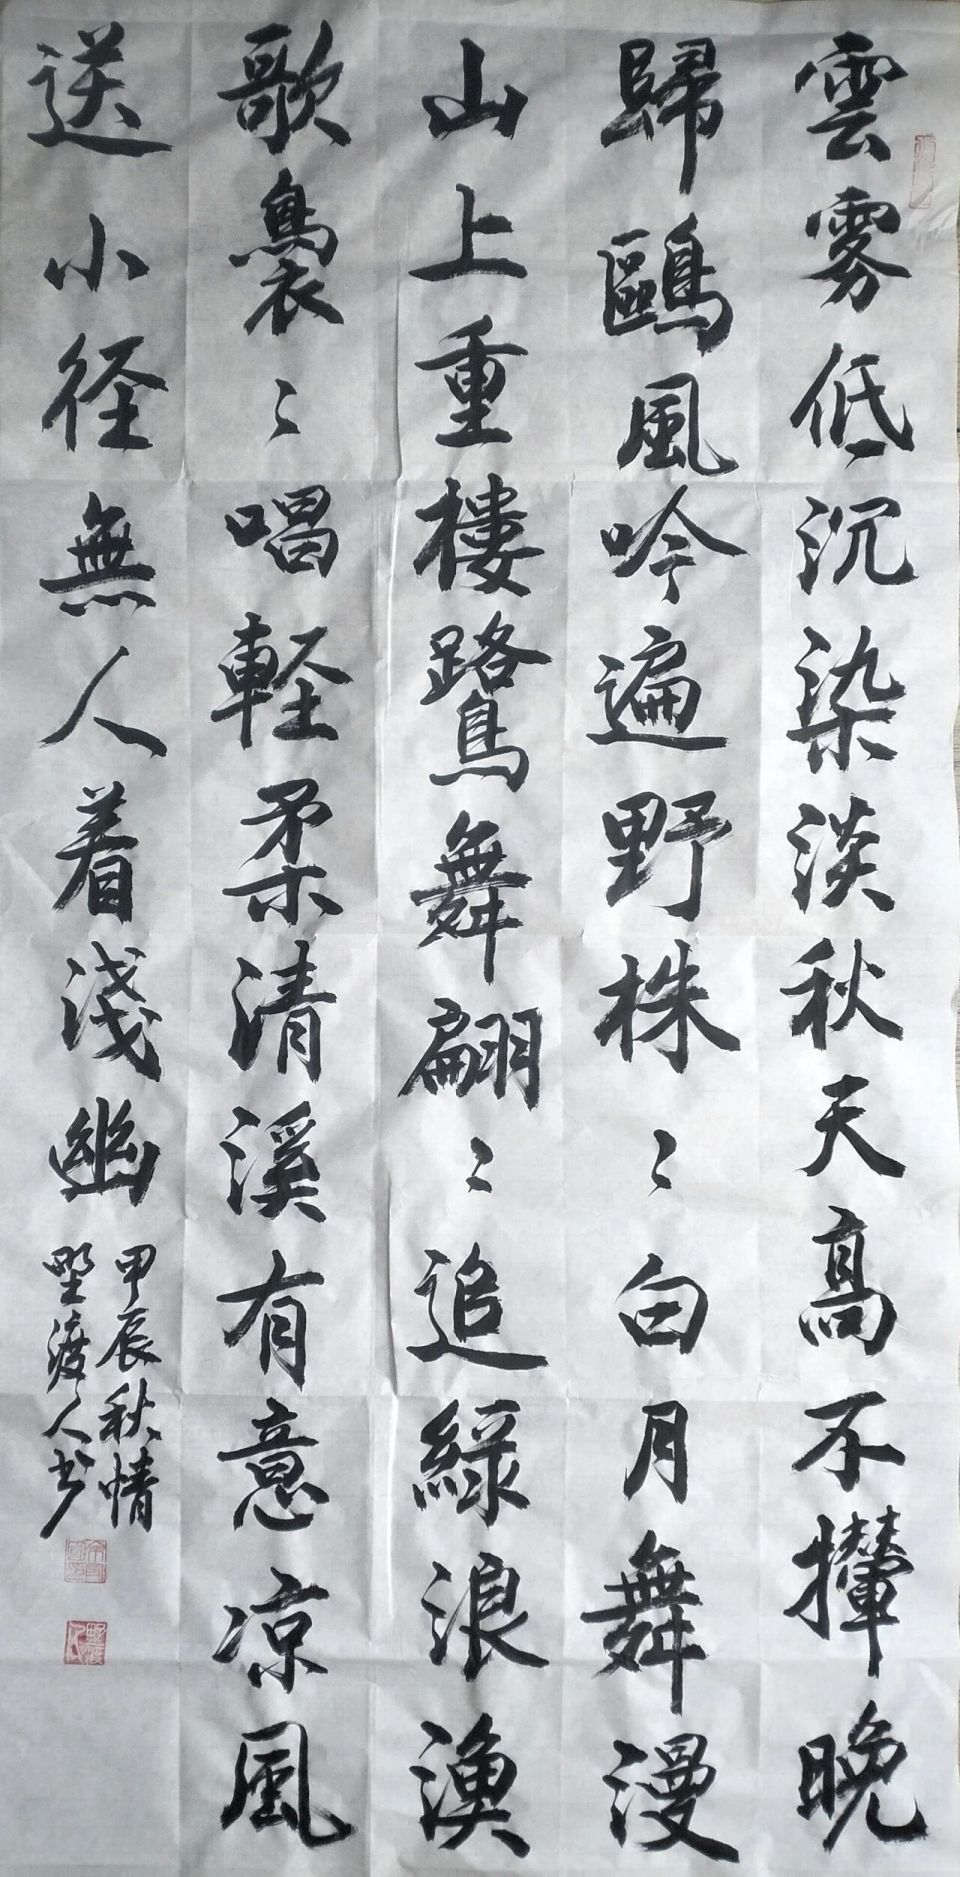 雲雾低沉染淡秋天高不攆晚
歸鷗風吟遍野株〻白月舞漫
山上重樓鷺舞翩〻追綠浪漁
歌裊〻唱軽柔清溪有意凉風
送小径無人着淺幽
甲辰秋情
野渡人书
野渡人